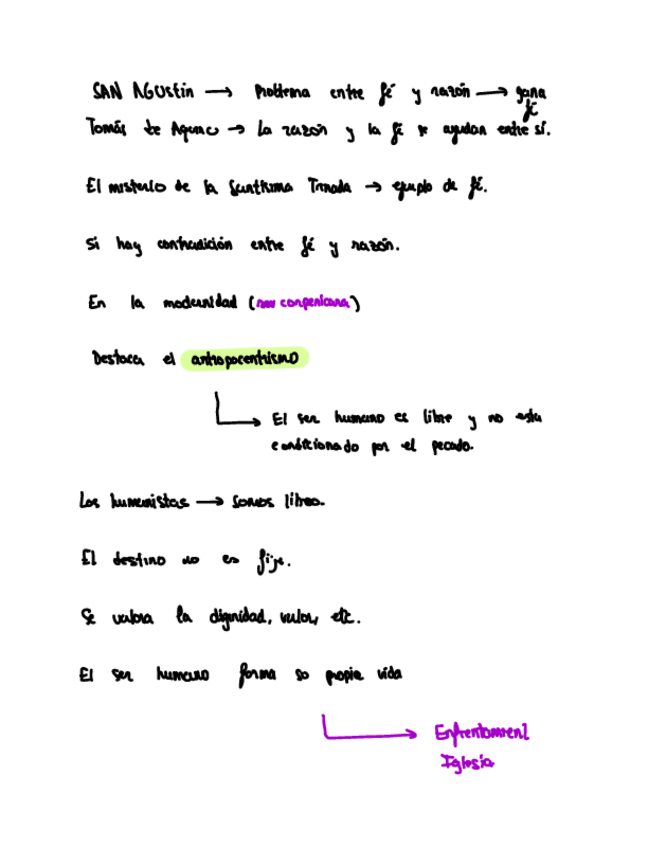 SAN AGUSTIN → Problema entre fé y razón → gana fé
Tomás de Aquino → La razón y la fé se ayudan entre sí.
El misterio de la Santísima Trinidad → ejemplo de fé.
Si hay contradicción entre fé y razón.
En la modernidad (
Destaca el antropocentrismo
El ser humano es libre y no esta
condicionado por el pecado.
Los humanistas → somos libres.
El destino no es fijo.
Se valora la dignidad, valor, etc.
El ser humano forma su propia vida
Enfrentament
Iglesia